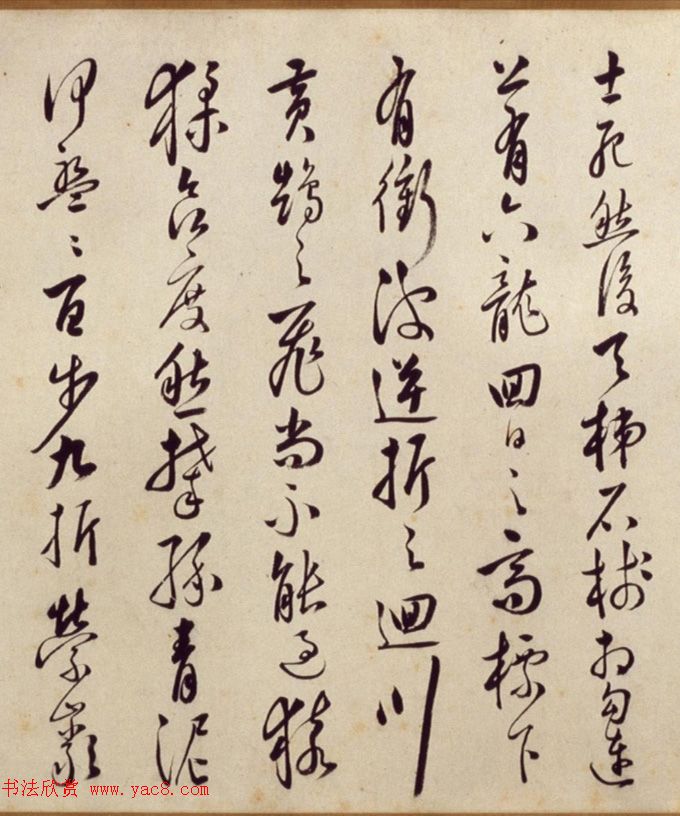 士死然後天梯石棧相勾連
上有六龍回日之高標下
有衝波逆折之迴川
黃鶴之飛尚不能過猿
猱欲度愁攀緣青泥
何盤〻百步九折縈巖
书法欣赏 www.yac8.com